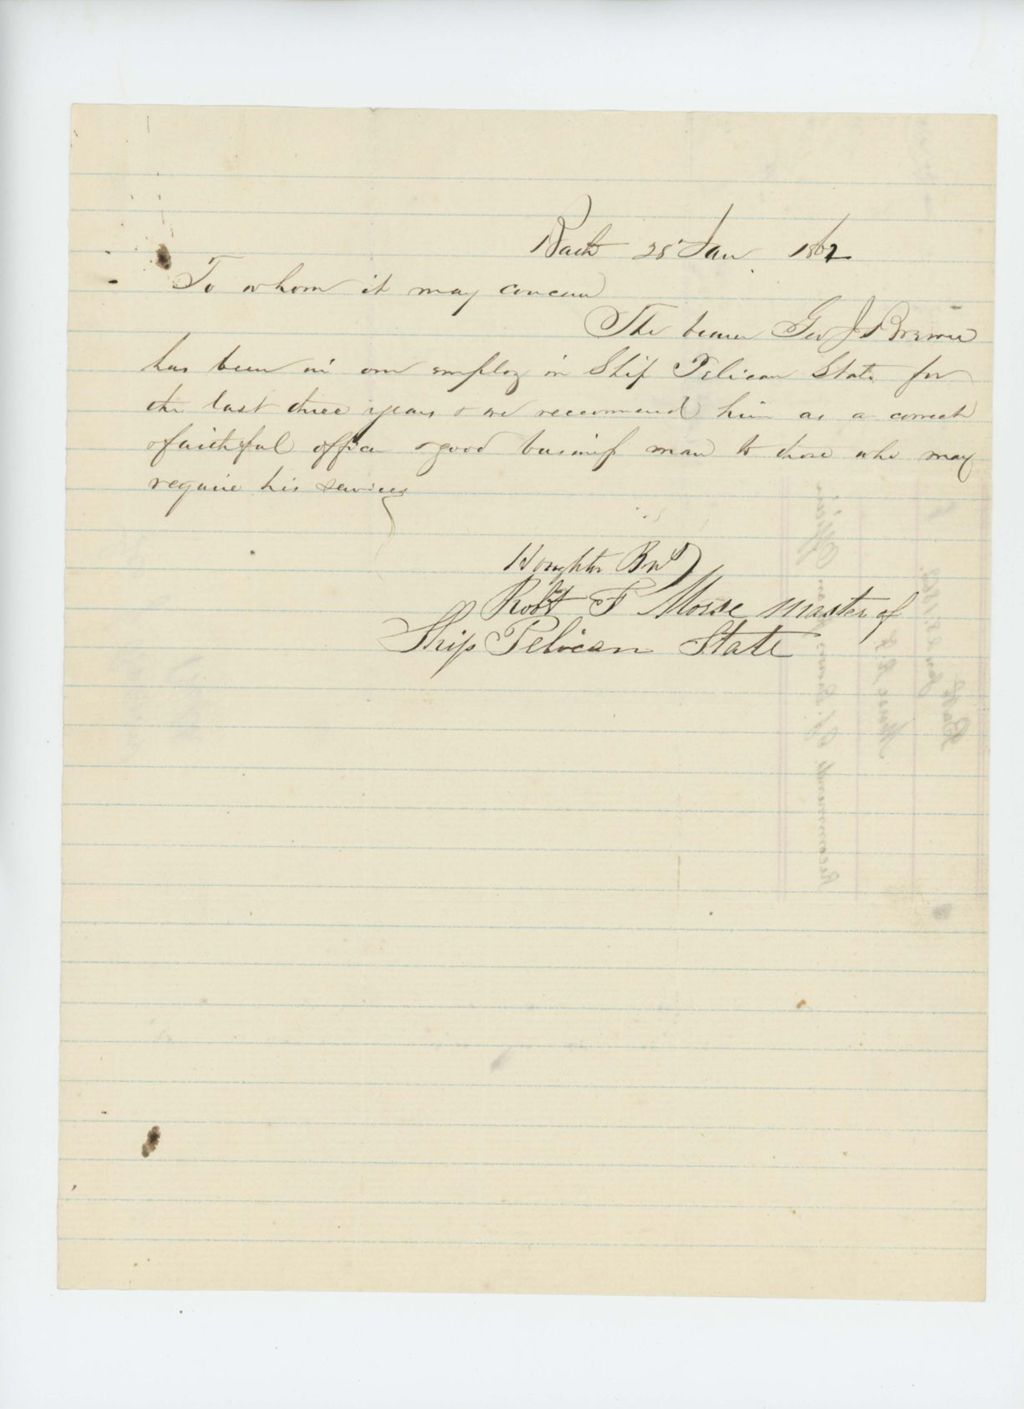 Bath 28 Jan 1862
To whom it may concern
The bearer Geo J Brown
has been in our employ in Ship Pelican State for
the last three years & we reccommend him as a correct
& faithful officer & good business man to those who may
require his services
Houghton Bros
Robt F Morse Master of
Ship Pelican State